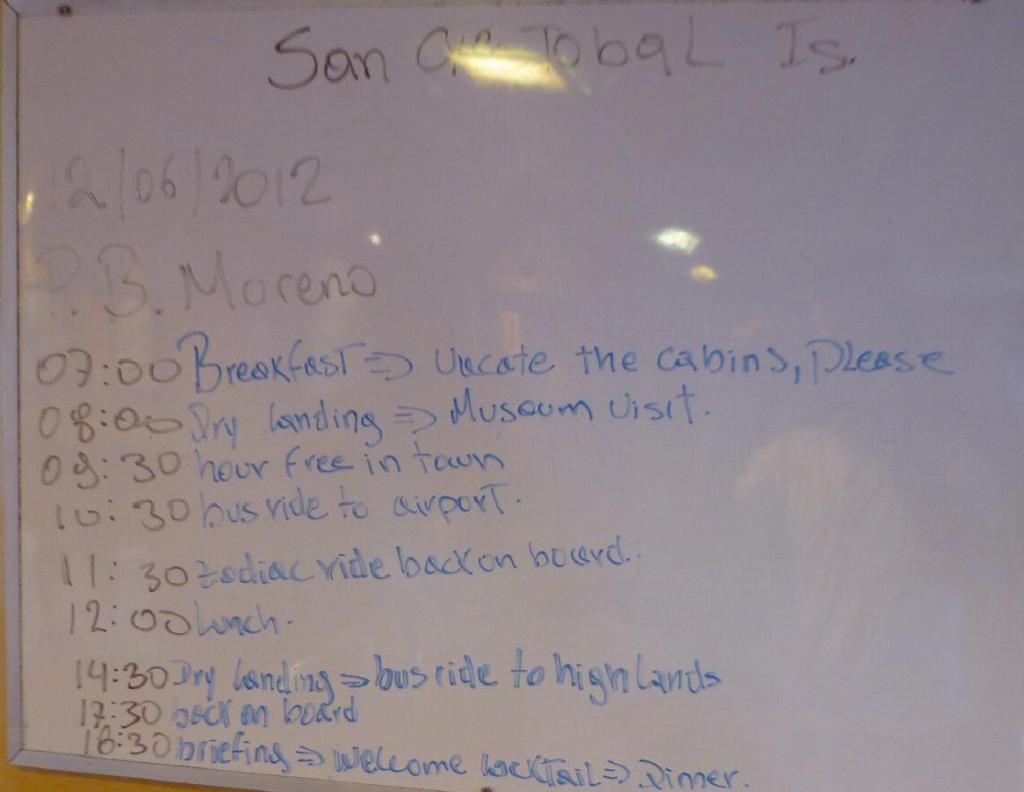 San Cristobal Is.
12/06/2012
P. B. Moreno
07:00 Breakfast => Vacate the cabins, please
08:00 Dry landing => Museum visit.
09:30 hour free in town
10:30 bus ride to airport.
11:30 zodiac ride back on board.
12:00 Lunch.
14:30 Dry landing => bus ride to highlands
17:30 back on board
18:30 briefing => welcome cocktail => Dinner.